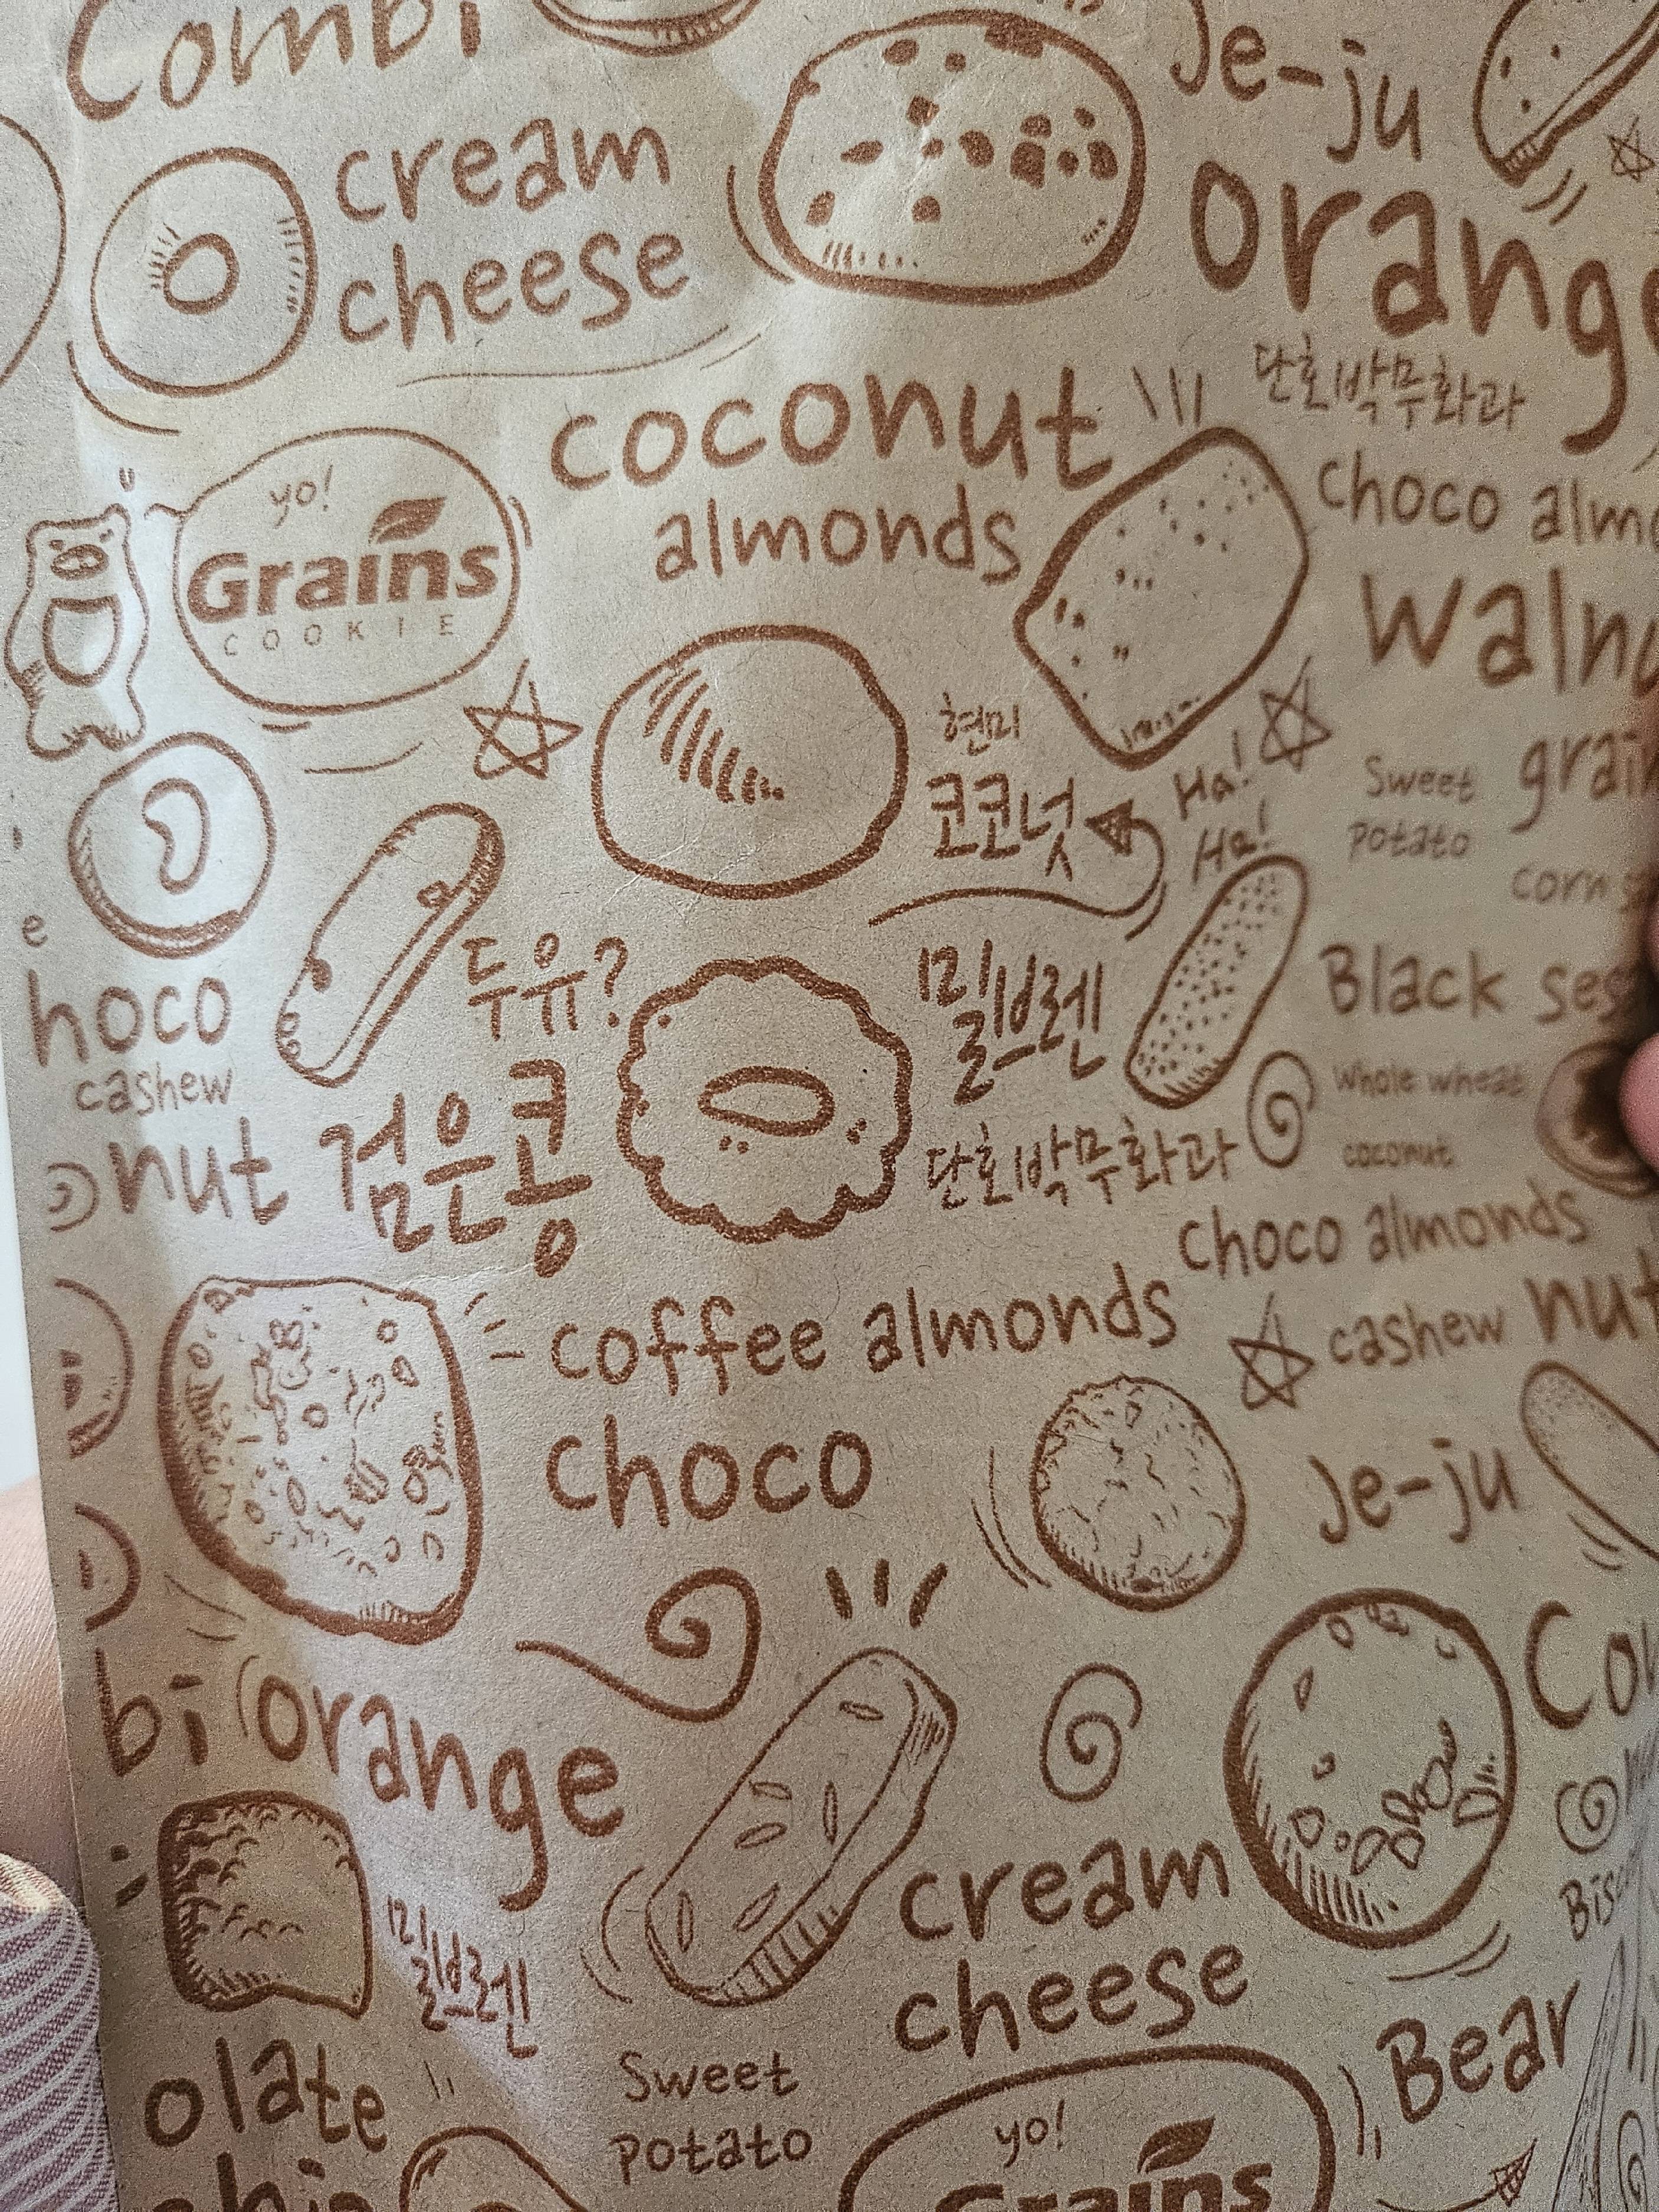 Combi
Je-ju
cream
cheese
orange
단호박무화과
coconut
almonds
choco
yo!
Grains
COOKIE
현미
코코넛
Ha!
Ha!
Sweet
potato
corn
e
hoco
cashew
nut
두유?
검은콩
밀브렌
Black
Whole wheat
coconut
단호박무화과
choco almonds
coffee almonds
cashew nut
choco
Je-ju
bi
orange
밀브렌
cream
cheese
olate
Sweet
potato
Bear
yo!
Grains